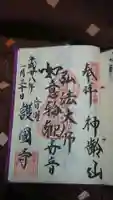 奉拝
神齢山
弘法大師
如意輪観世音
護國寺
平成廿八年
一月三十日